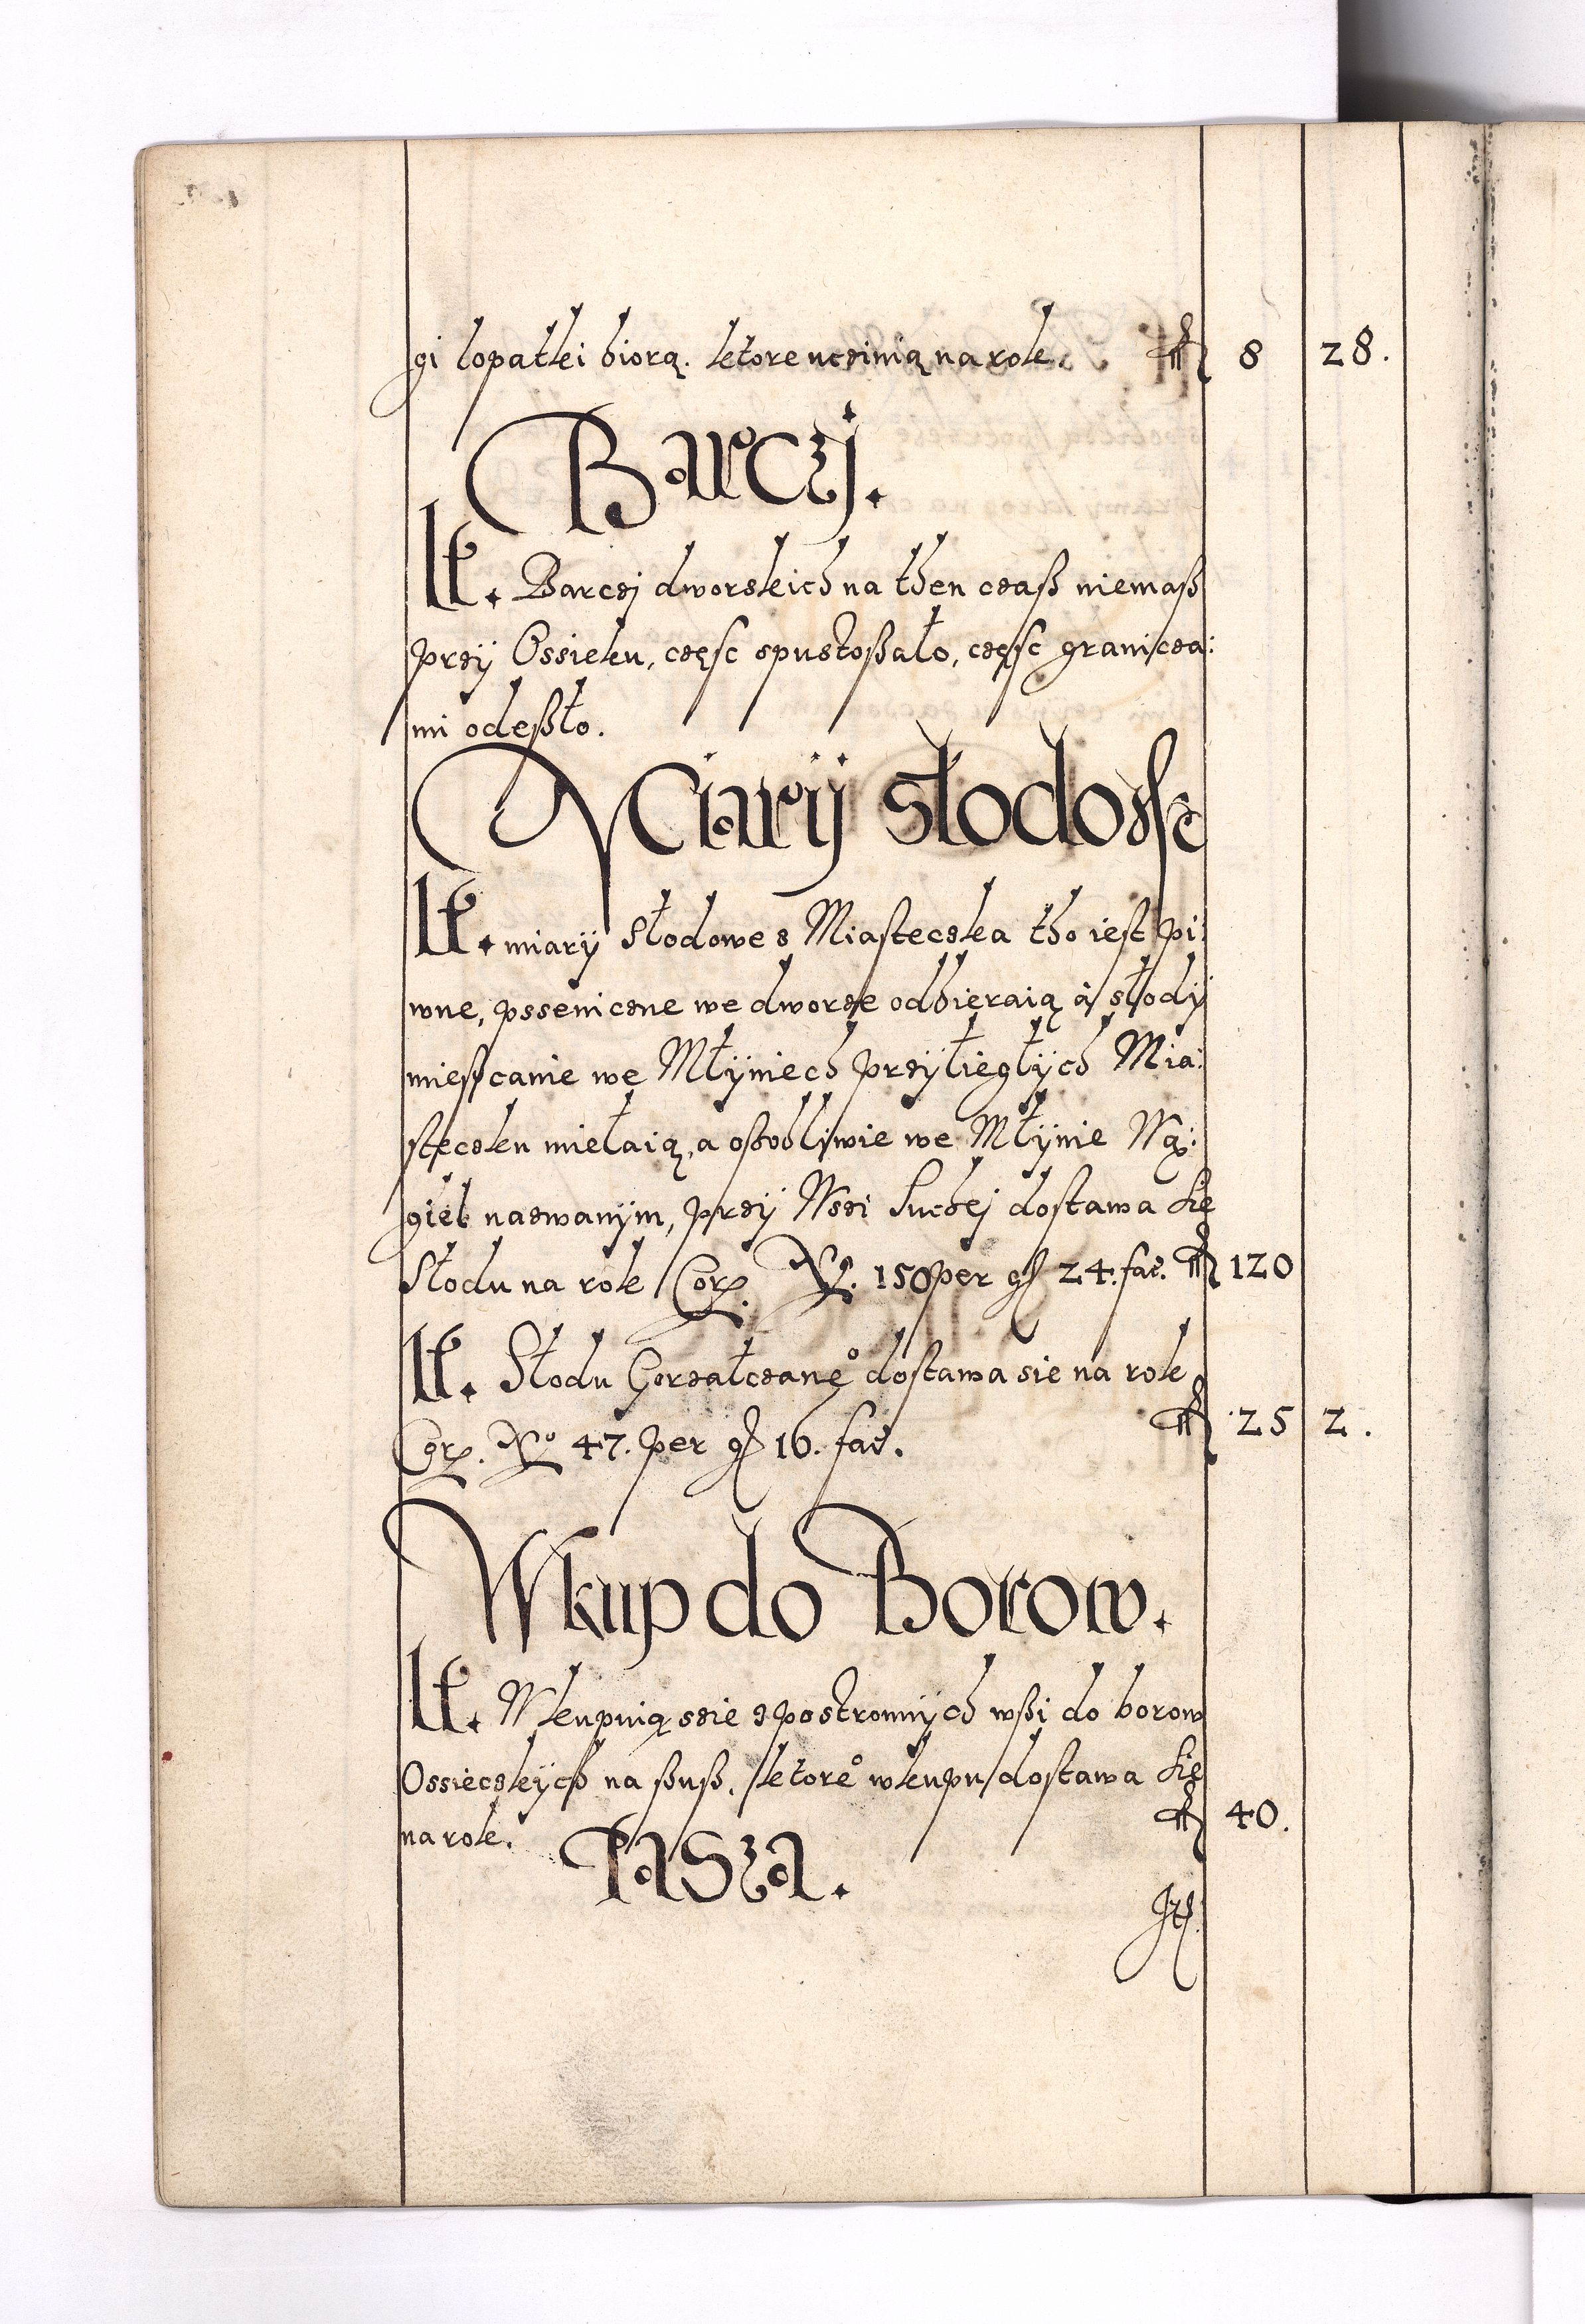 gi łopatki biorą. ktore uczinią na rok. fl 8 28.
Barczj.
It. Barczj dworskich na then czaß niemaß
przÿ Ossieku, częsc spustoßało, częsc granicza:
mi odeßło.
Miarÿ słodowe
It. miarÿ słodowe z Miasteczka tho iest pi:
wne, psseniczne we dworze odbieraią á słodÿ
miesscanie we Młÿniech przÿliegłÿch Mia:
steczku miełaią, a osobliwie we Młÿnie Wą:
giel nazwanÿm, przÿ Wsi Suchej dostawa się
Słodu na rok Cor. No. 150 per gr 24. fac. fl 120
It. Słodu Gorzałczaneo dostawa sie na rok
Cor. No 47. per gr 16. fac. fl 25 2.
Wkup do Borow.
It. Wkupuią ssie z postronnÿch wßi do borow
Ossieczkÿch na ßuß. ktoreo wkupu dostawa się
na rok. fl 40.
Pasza.
It.